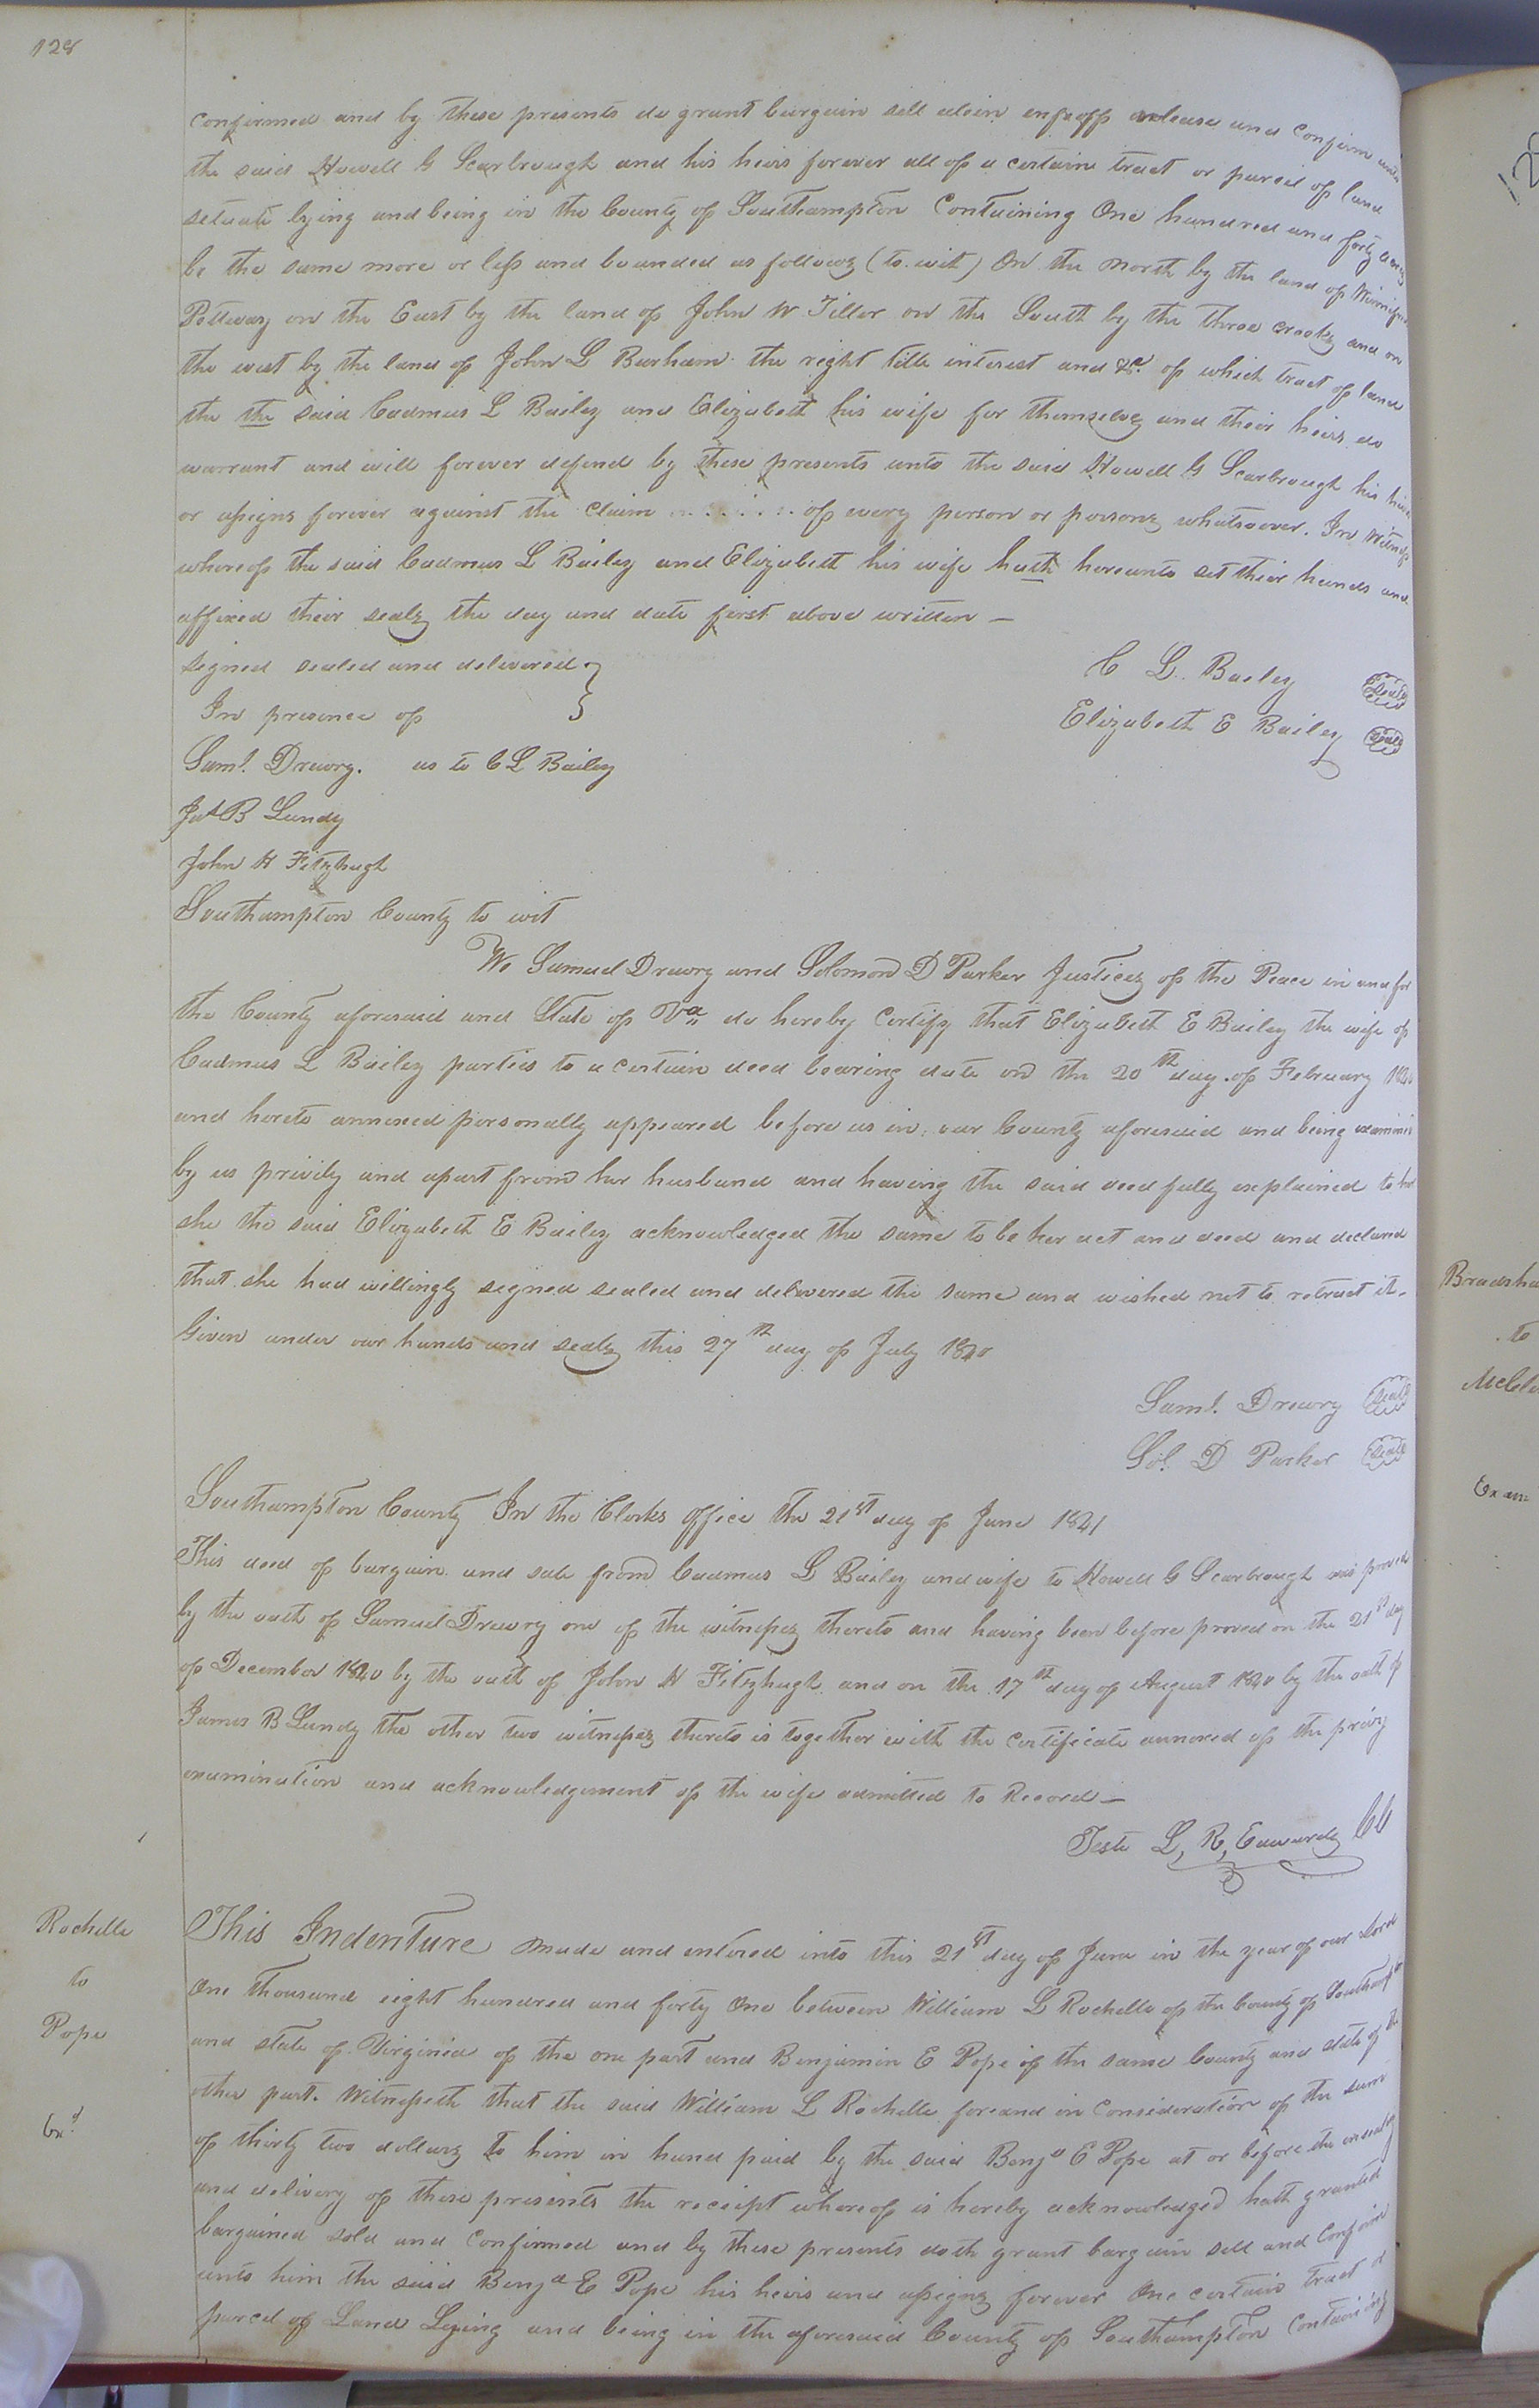 128
confirmed and by these presents do grant bargain sell alein enfeoff release and confirm unto
the said Howell G Scarbrough and his heirs forever all of a certain tract or parcel of land
situate lying and being in the County of Southampton Containing One hundred and forty acres
be the same more or less and bounded as follows (to. wit) On the North by the land of
on the East by the land of John W Tiller on the South by the three creeks and on
the west by the land of John L Barham. the right title interest and &c. of which tract of land
the the said Cadmus L Bailey and Elizabeth his wife for themselves and their heirs do
warrant and will forever defend by these presents unto the said Howell G Scarbrough his heirs
or assigns forever against the claim ........ of every person or persons whatsoever. In Witness
whereof the said Cadmus L Bailey and Elizabeth his wife hath hereunto set their hands and
affixed their seals the day and date first above written —
Signed sealed and delivered }
In presence of }
C L. Bailey Seal
Elizabeth E Bailey Seal
Saml. Drewry. as to C L Bailey
Jas B Lundy
John H Fitzhugh
Southampton County to wit
We Samuel Drewry and Solomon D Parker Justices of the Peace in and for
the County aforesaid and State of Va. do hereby Certify that Elizabeth E Bailey the wife of
Cadmus L Bailey parties to a certain deed bearing date on the 20th day of February 1840
and hereto annexed personally appeared before us in our County aforesaid and being examined
by us privily and apart from her husband and having the said deed fully explained to her
she the said Elizabeth E Bailey acknowledged the same to be her act and deed and declared
that she had willingly signed sealed and delivered the same and wished not to retract it.
Given under our hands and seals this 27th day of July 1840
Saml. Drewry Seal
Sol. D Parker Seal
Southampton County In the Clerks office the 21st day of June 1841
This deed of bargain and sale from Cadmus L Bailey and wife to Howell G Scarbrough was proved
by the oath of Samuel Drewry one of the witnesses thereto and having been before proved on the 21st day
of December 1840 by the oath of John H Fitzhugh and on the 17th day of August 1840 by the oath of
James B Lundy the other two witnesses thereto is together with the certificate annexed of the privy
examination and acknowledgement of the wife admitted to Record —
Teste L, R, Edwards CC
Rochelle
to
Pope
Exd
This Indenture made and entered into this 21st day of June in the year of our Lord
One thousand eight hundred and forty One between William L Rochelle of the County of Southampton
and state of Virginia of the one part and Benjamin E Pope of the same County and state of the
other part. Witnesseth that the said William L Rochelle for and in Consideration of the sum
of thirty two dollars to him in hand paid by the said Benja E Pope at or before the ensealing
and delivery of these presents the receipt whereof is hereby acknowledged hath granted
bargained sold and Confirmed and by these presents doth grant bargain sell and Confirm
unto him the said Benja E Pope his heirs and assigns forever One certain tract or
parcel of Land Lying and being in the aforesaid County of Southampton Containing
Bradsha
to
McCle
Exam